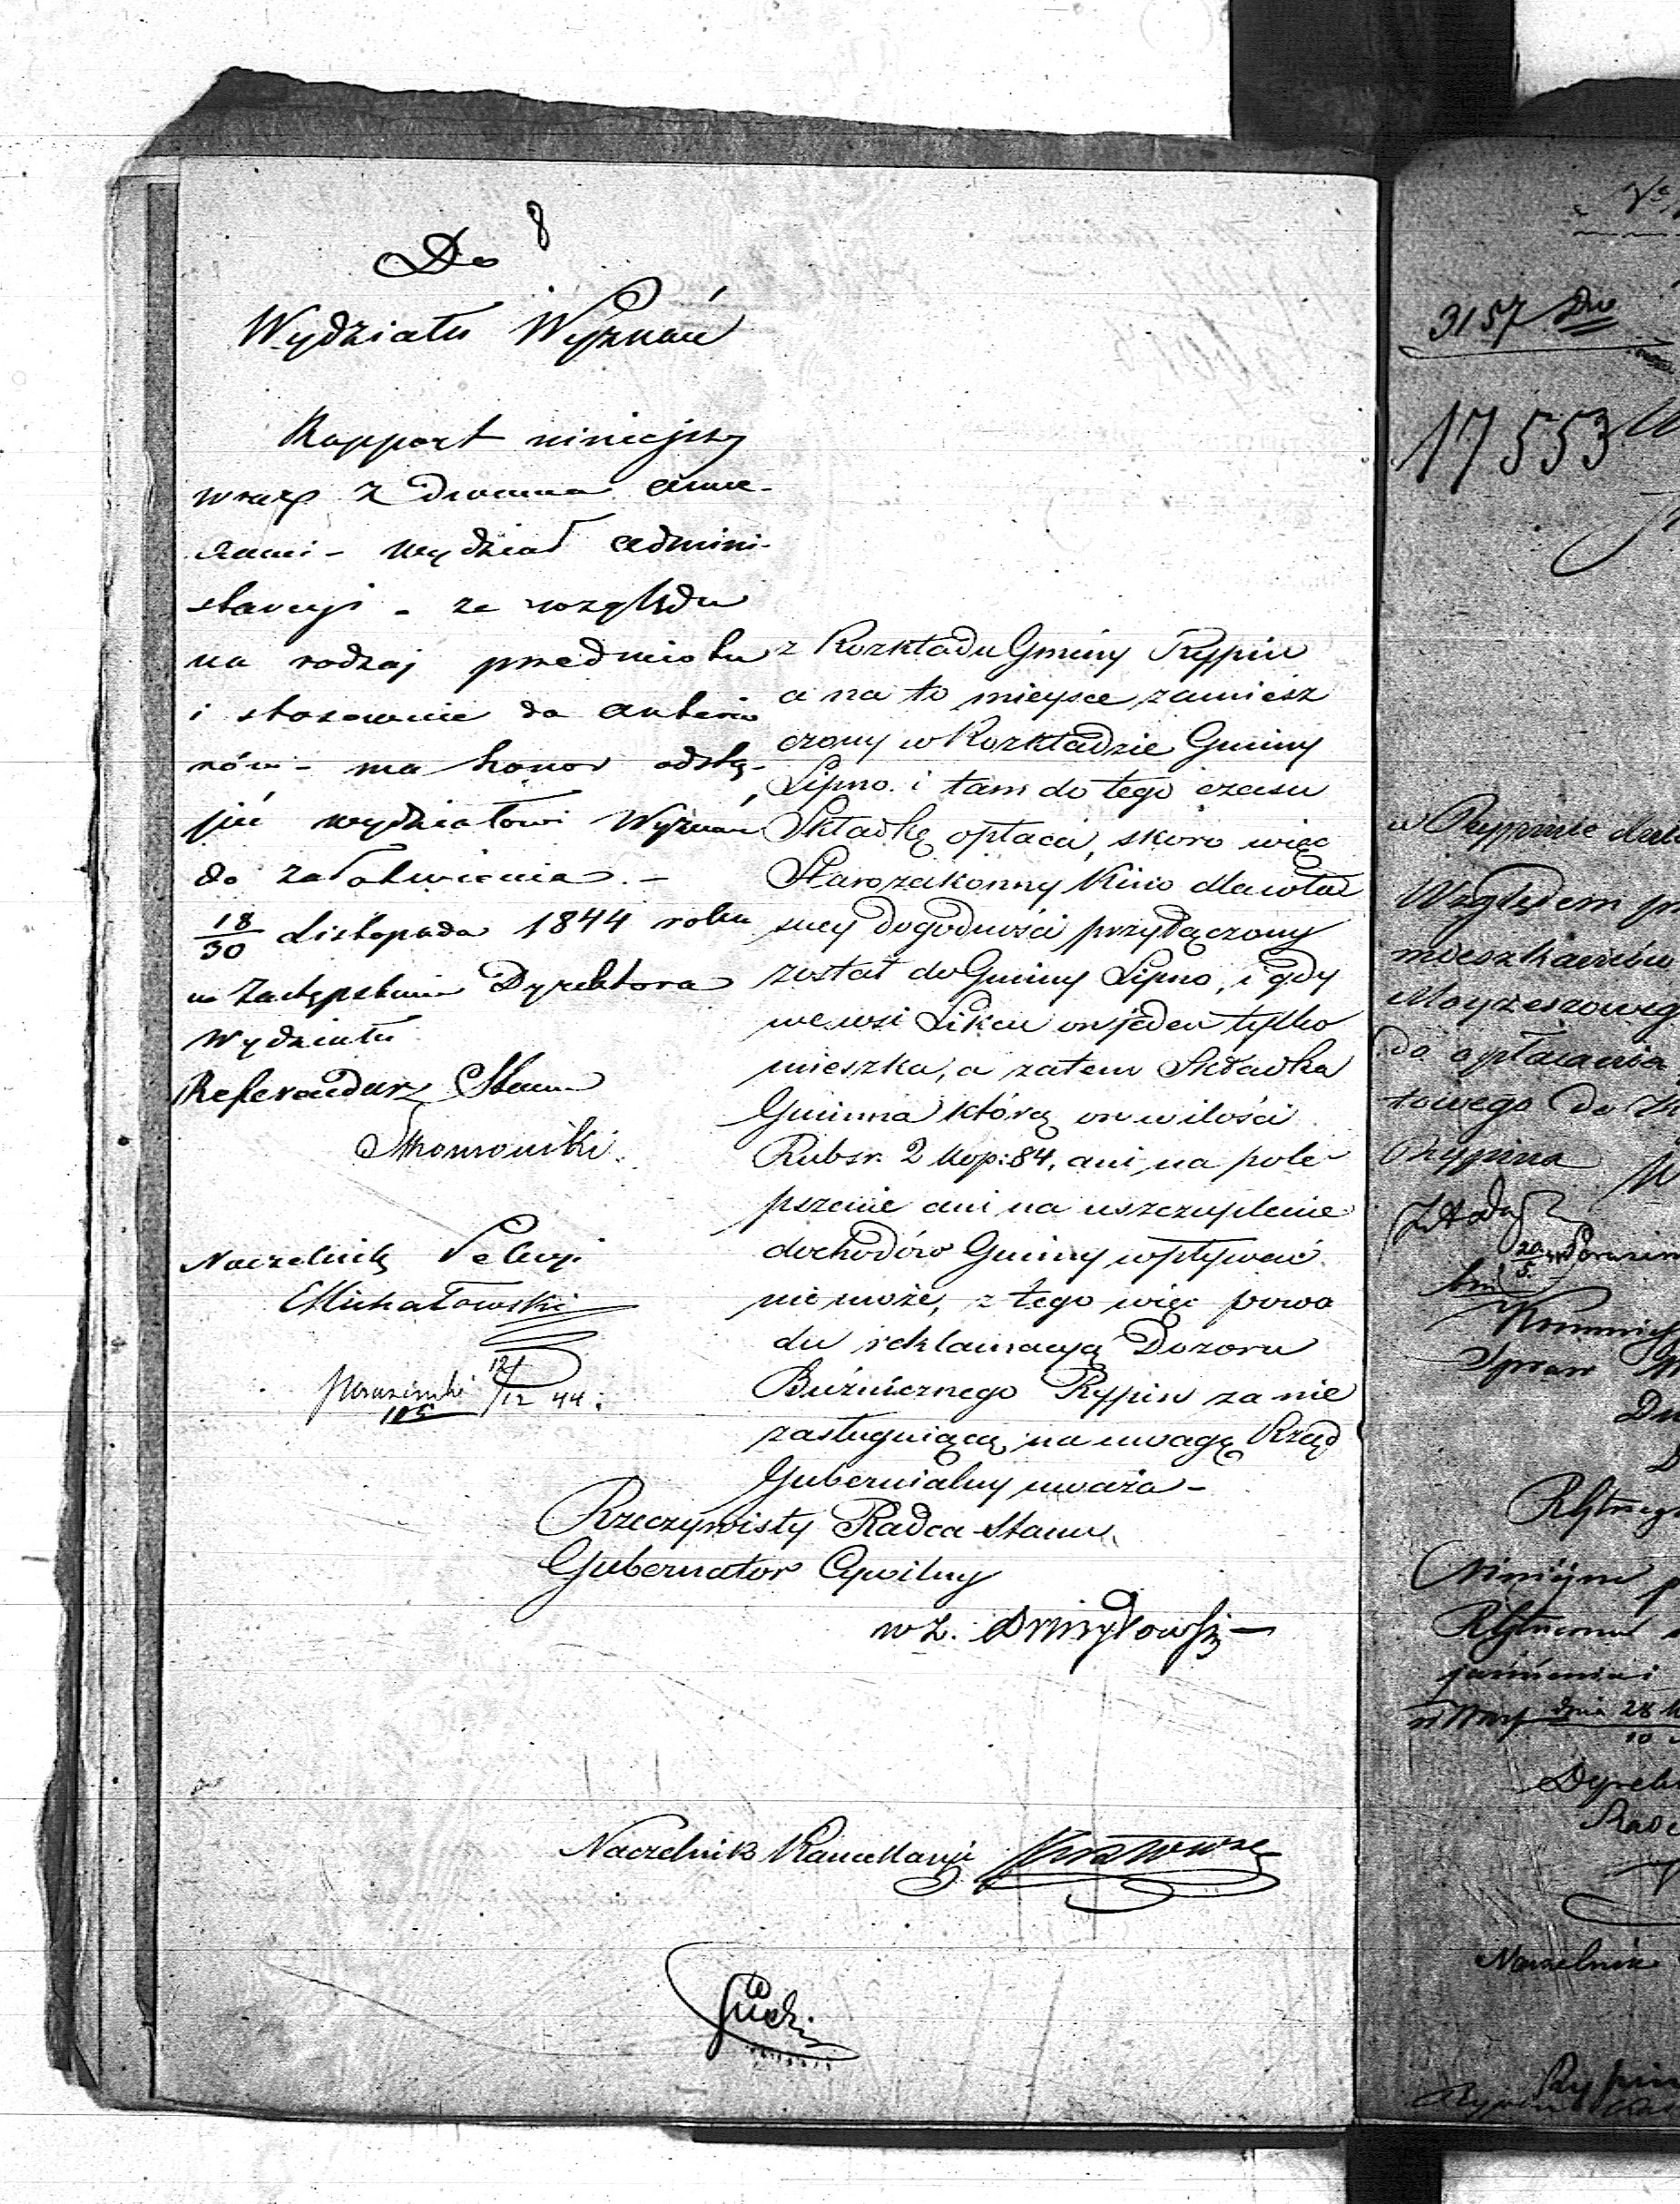 8
Do
Wydziału Wyznań
Rapport niniejszy
wraz z dwoma anne-
xami - Wydział Admini-
stracyi - ze względu
na rodzaj przedmiotu
i stosownie do anterio
rów - ma honor odstą-
pić wydziałowi Wyznań
do załatwienia. -
18/30 Listopada 1844 roku
w Zastępstwie Dyrektora
Wydziału
Referendarz Stanu
Naczelnik Sekcyi
Michałowski
12/12 44
z Rozkładu Gminy Rypin
a na to mieysce zamiesz
czony w Rozkładzie Gminy
Lipno i tam do tego czasu
Składkę opłaca, skoro więc
Starozakonny Kino dla wła
sney dogodności przyłączony
został do Gminy Lipno, i gdy
we wsi Likeu on jeden tylko
mieszka, a zatem Składka
Gminna którą on w ilości
Rubsr. 2 kop: 84, ani na pole
pszenie ani na uszczuplenie
dochodów Gminy wpływać
nie może, z tego więc powo
du reklamacyą Dozoru
Bużnicznego Rypin za nie
zasługuiącą na uwagę Rząd
Gubernialny uważa -
Rzeczywisty Radca Stanu
Gubernator Cywilny
w z.
Naczelnik Kancellaryi
3157
17553
w Rypinie
Względem
mieszkańców
do opłacania
towego do
Rypina
Spraw
dnia 28
Naczelnik
Rypin